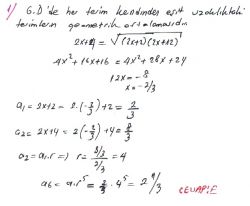 1) G.D'de her terim kendinden eşit uzaklıktaki
terimlerin geometrik ortalamasıdır
2x+4 = √(2x+2)(2x+12)
4x² + 16x + 16 = 4x² + 28x + 24
12x = -8
x = -2/3
a₁ = 2x+2 = 2·(-2/3) + 2 = 2/3
a₂ = 2x+4 = 2·(-2/3) + 4 = 8/3
a₂ = a₁·r ⇒ r = 8/3 / 2/3 = 4
a₆ = a₁·r⁵ = 2/3 · 4⁵ = 2
CEVAP: E